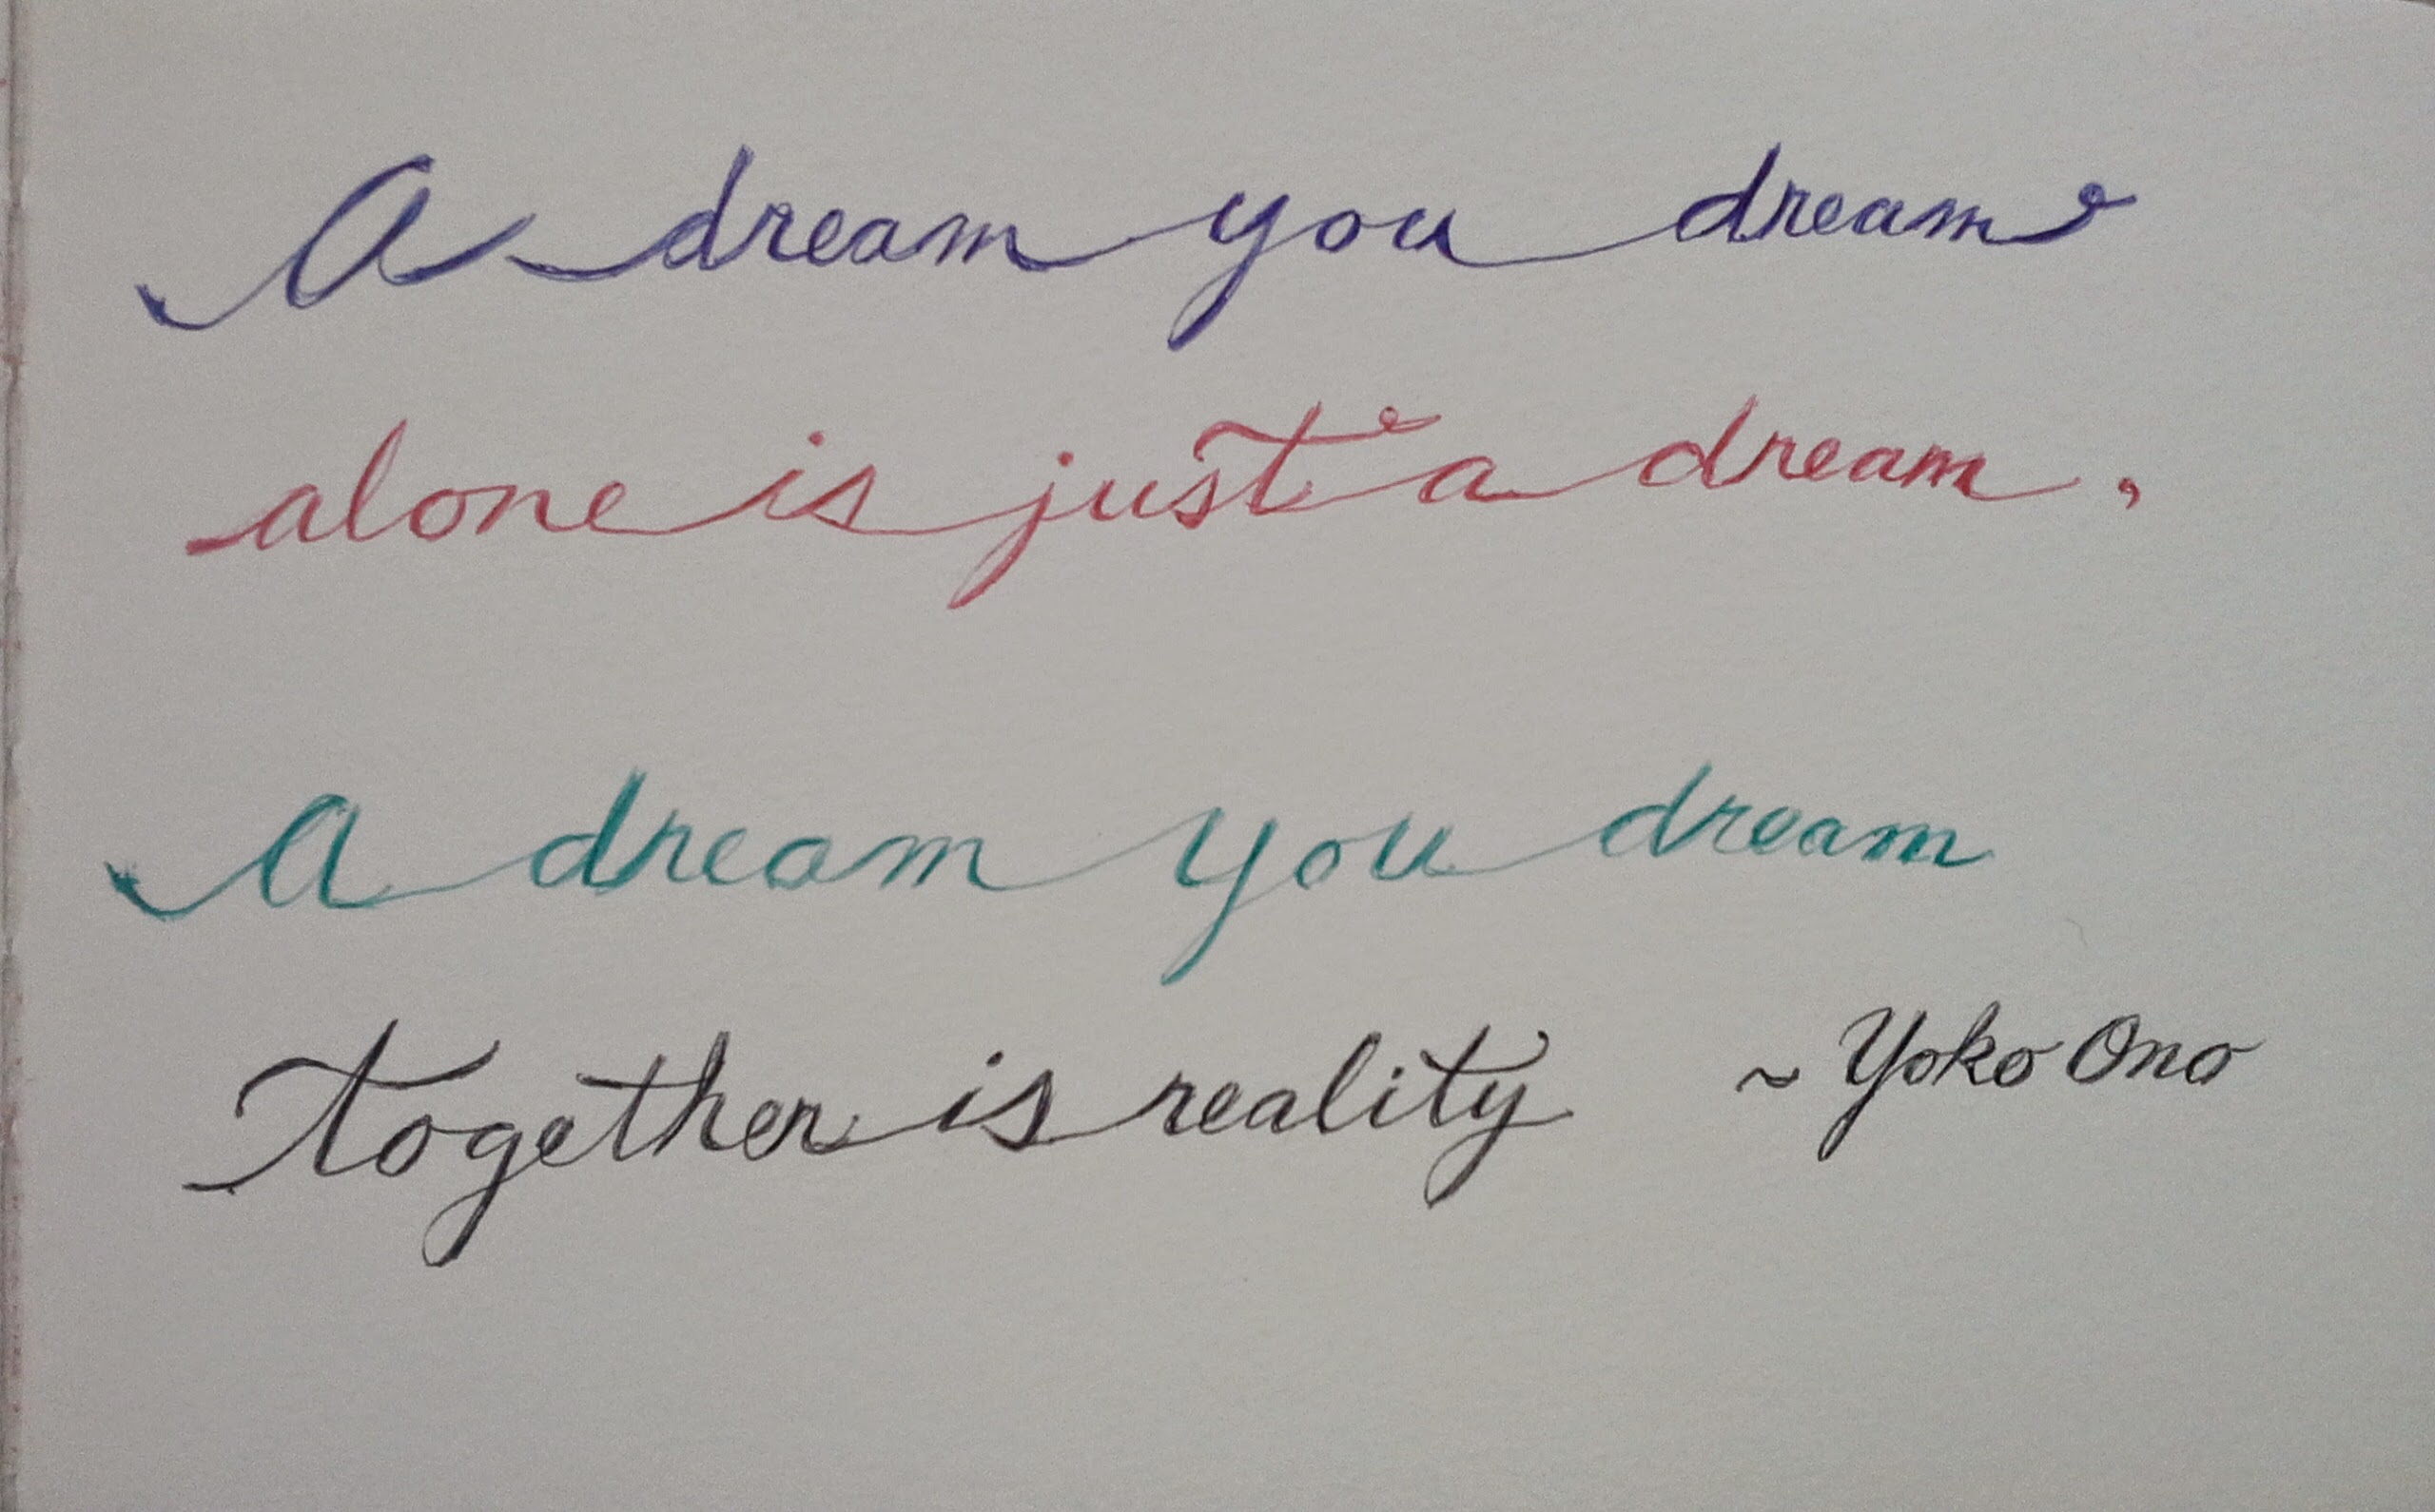 A dream you dream
alone is just a dream,
A dream you dream
together is reality ~ Yoko Ono